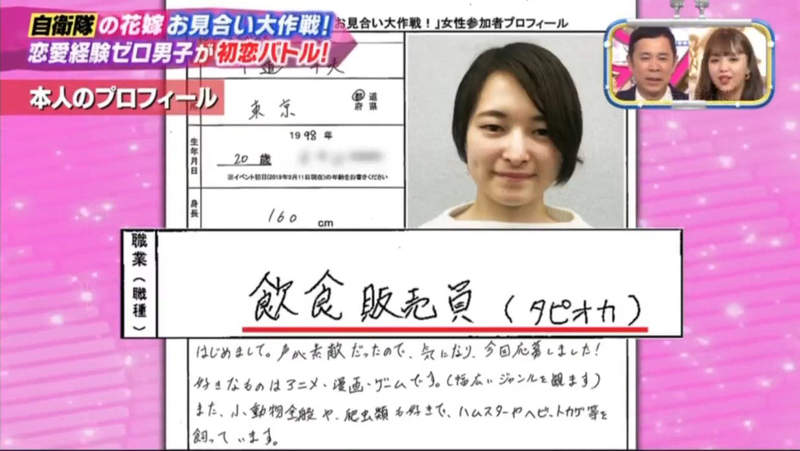 自衛隊の花嫁お見合い大作戦!
恋愛経験ゼロ男子が初恋バトル!
本人のプロフィール
お見合い大作戦!」女性参加者プロフィール
東京
都道
府県
生年月日
1998年
20歳
※イベント初日(2019年3月11日現在)の年齢をお書きください
身長
160cm
職業(職種)
飲食販売員(タピオカ)
はじめまして。声が素敵だったので、気になり、今回応募しました!
好きなものはアニメ・漫画・ゲームです。(幅広いジャンルを観ます)
また、小動物全般や、爬虫類も好きで、ハムスターやヘビ、トカゲ等を
飼っています。